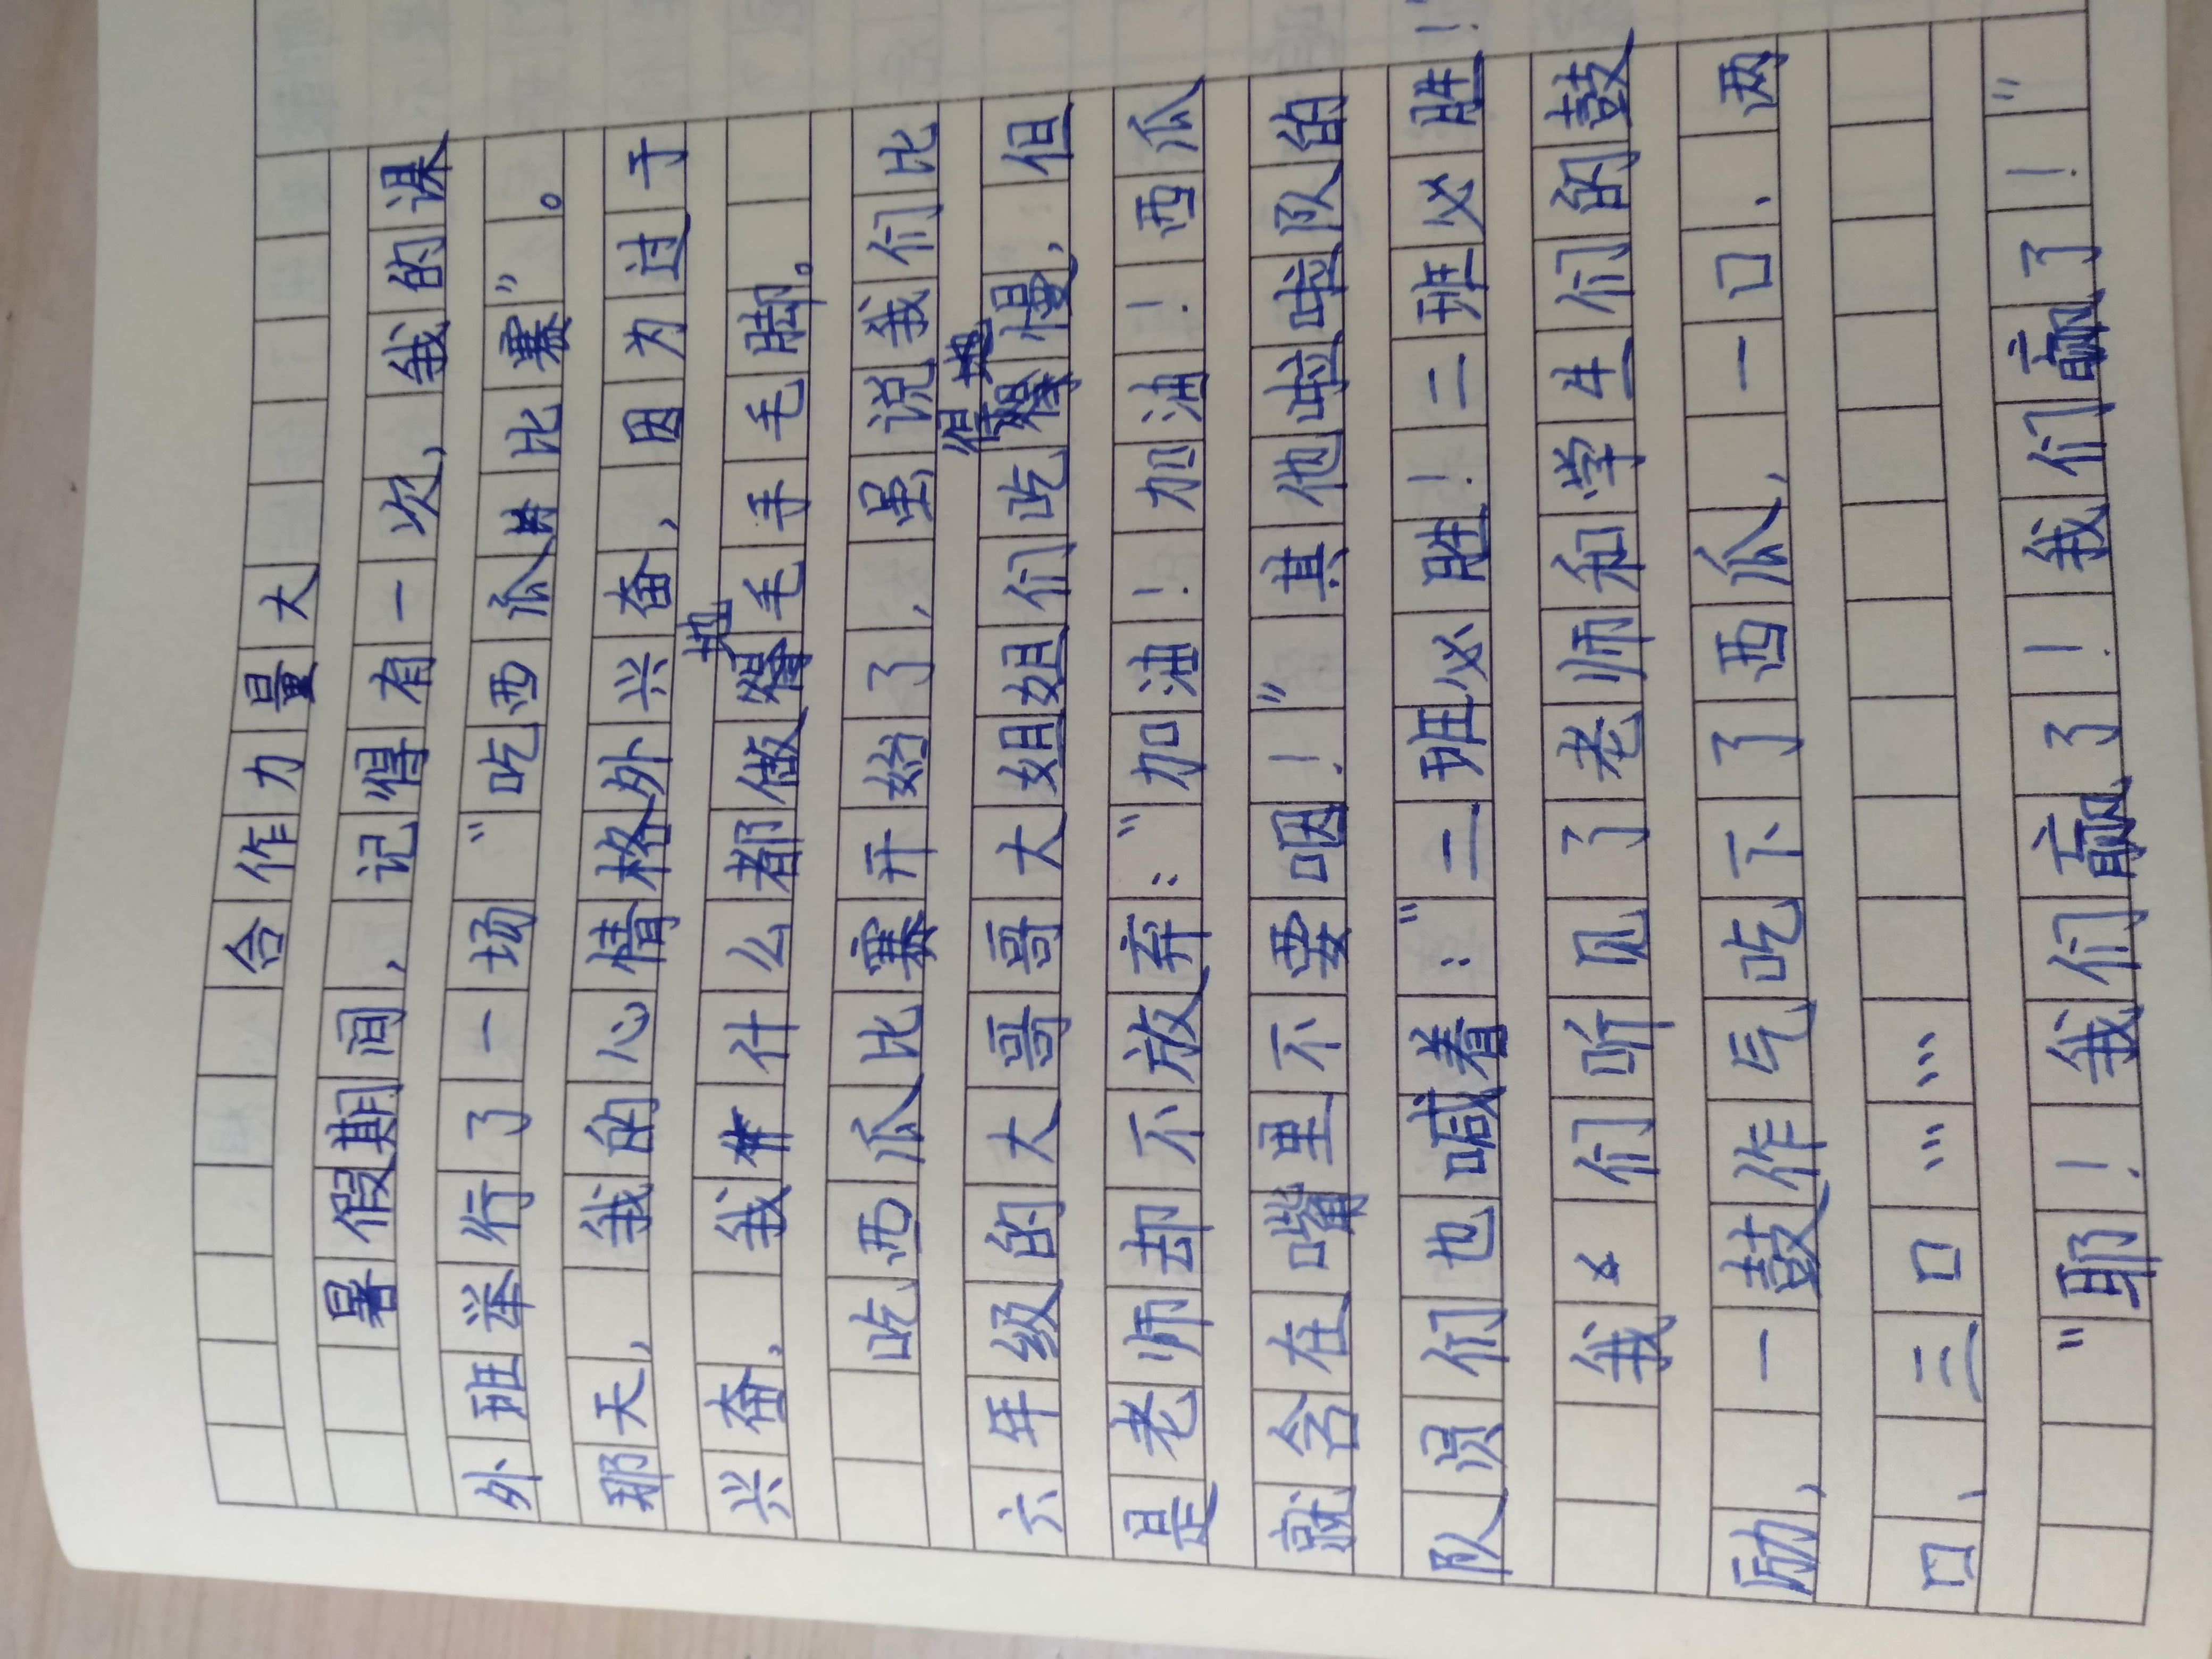 合作力量大
暑假期间，记得有一次，我的课
外班举行了一场“吃西瓜比赛”。
那天，我的心情格外兴奋，因为过于
兴奋，我什么都做地毛手毛脚。
吃西瓜比赛开始了，虽说我们比
六年级的大哥哥大姐姐们吃得慢，但
是老师却不放弃：“加油！加油！西瓜
就含在嘴里不要咽！”其他啦啦队的
队员们也喊着：“二班必胜！二班必胜！”
我们听见了老师和学生们的鼓
励，一鼓作气吃下了西瓜，一口、两
口、三口……
“耶！我们赢了！我们赢了！”